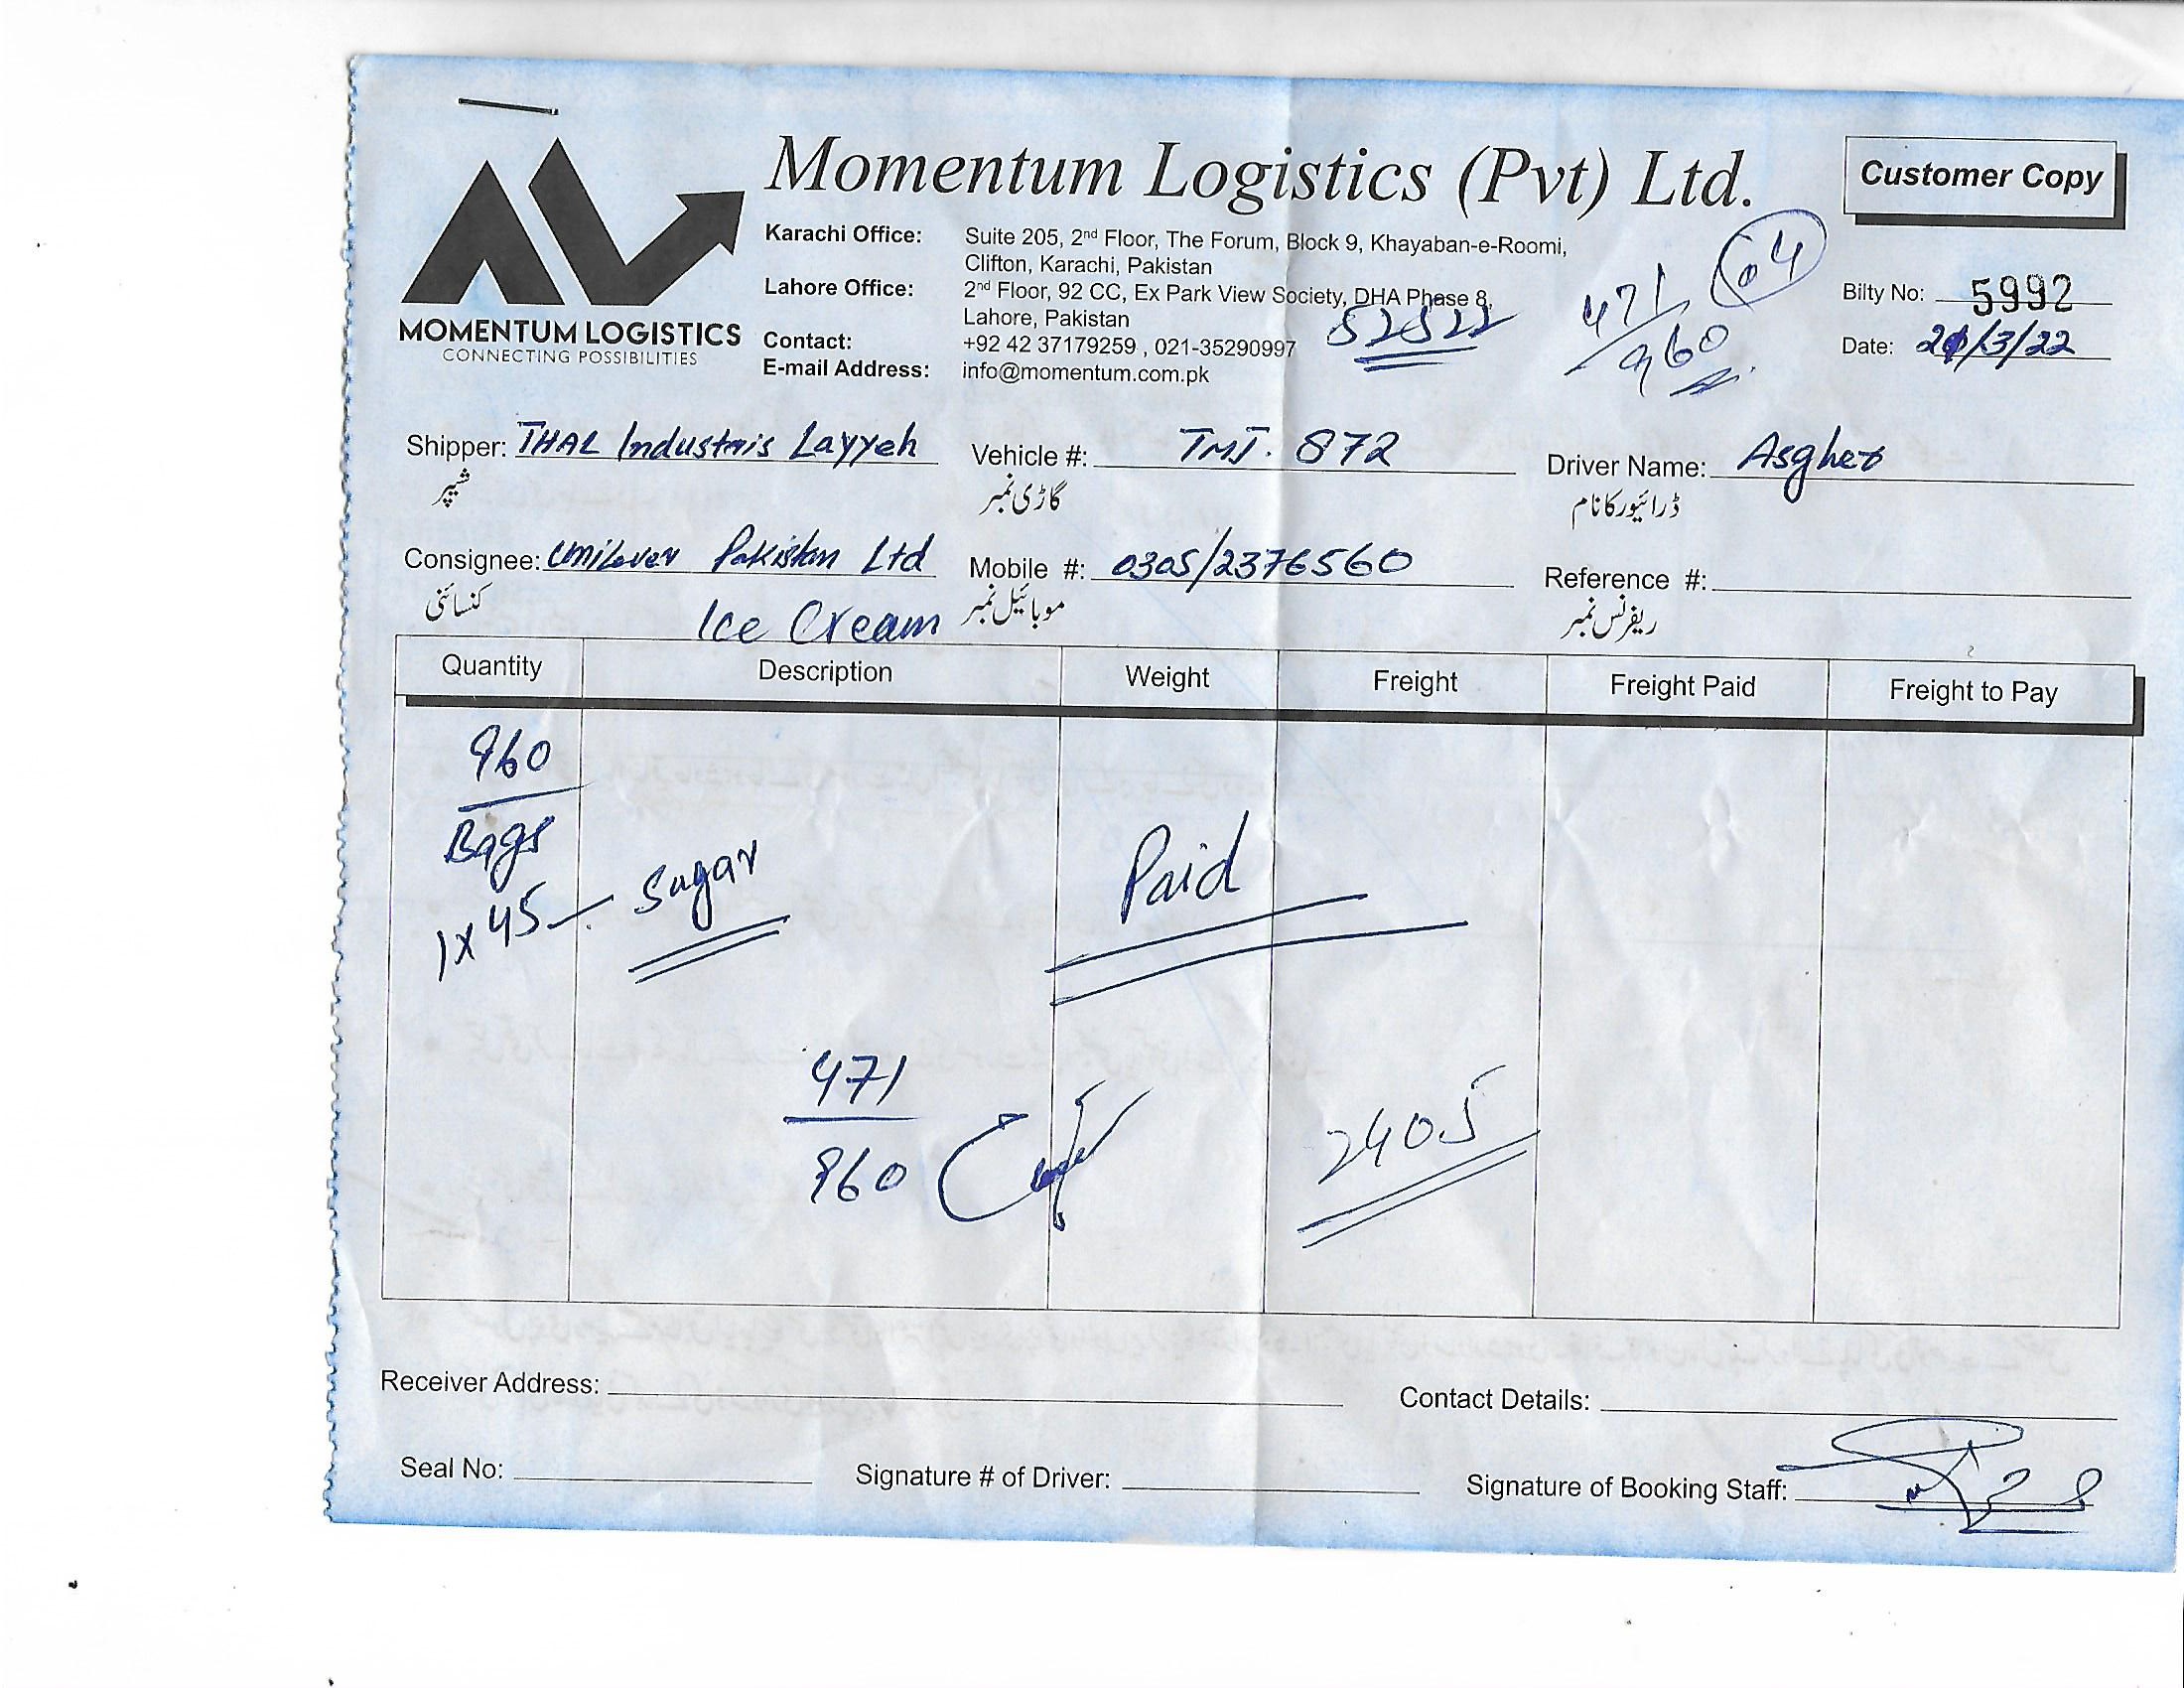 Momentum Logistics (Pvt) Ltd.
Customer Copy
MOMENTUM LOGISTICS
CONNECTING POSSIBILITIES
Karachi Office: Suite 205, 2nd Floor, The Forum, Block 9, Khayaban-e-Roomi,
Clifton, Karachi, Pakistan
Lahore Office: 2nd Floor, 92 CC, Ex Park View Society, DHA Phase 8,
Lahore, Pakistan
Contact: +92 42 37179259 , 021-35290997
E-mail Address: info@momentum.com.pk
52522
471
960
04
Bilty No: 5992
Date: 21/3/22
Shipper: THAL Industris Layyeh Vehicle #: TMJ. 872 Driver Name: Asgher
شیپر گاڑی نمبر ڈرائیور کا نام
Consignee: Unilever Pakistan Ltd Mobile #: 0305/2376560 Reference #:
کنسائنی Ice Cream موبائیل نمبر ریفرنس نمبر
Quantity Description Weight Freight Freight Paid Freight to Pay
960
Bags
1x45 Sugar
Paid
471
960
2405
Receiver Address: Contact Details:
Seal No: Signature # of Driver: Signature of Booking Staff: